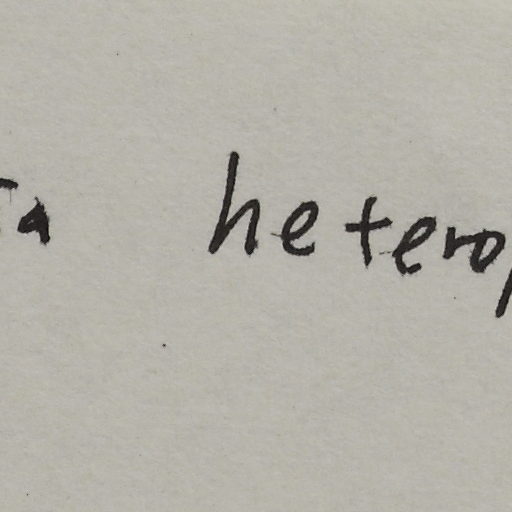 a heterop